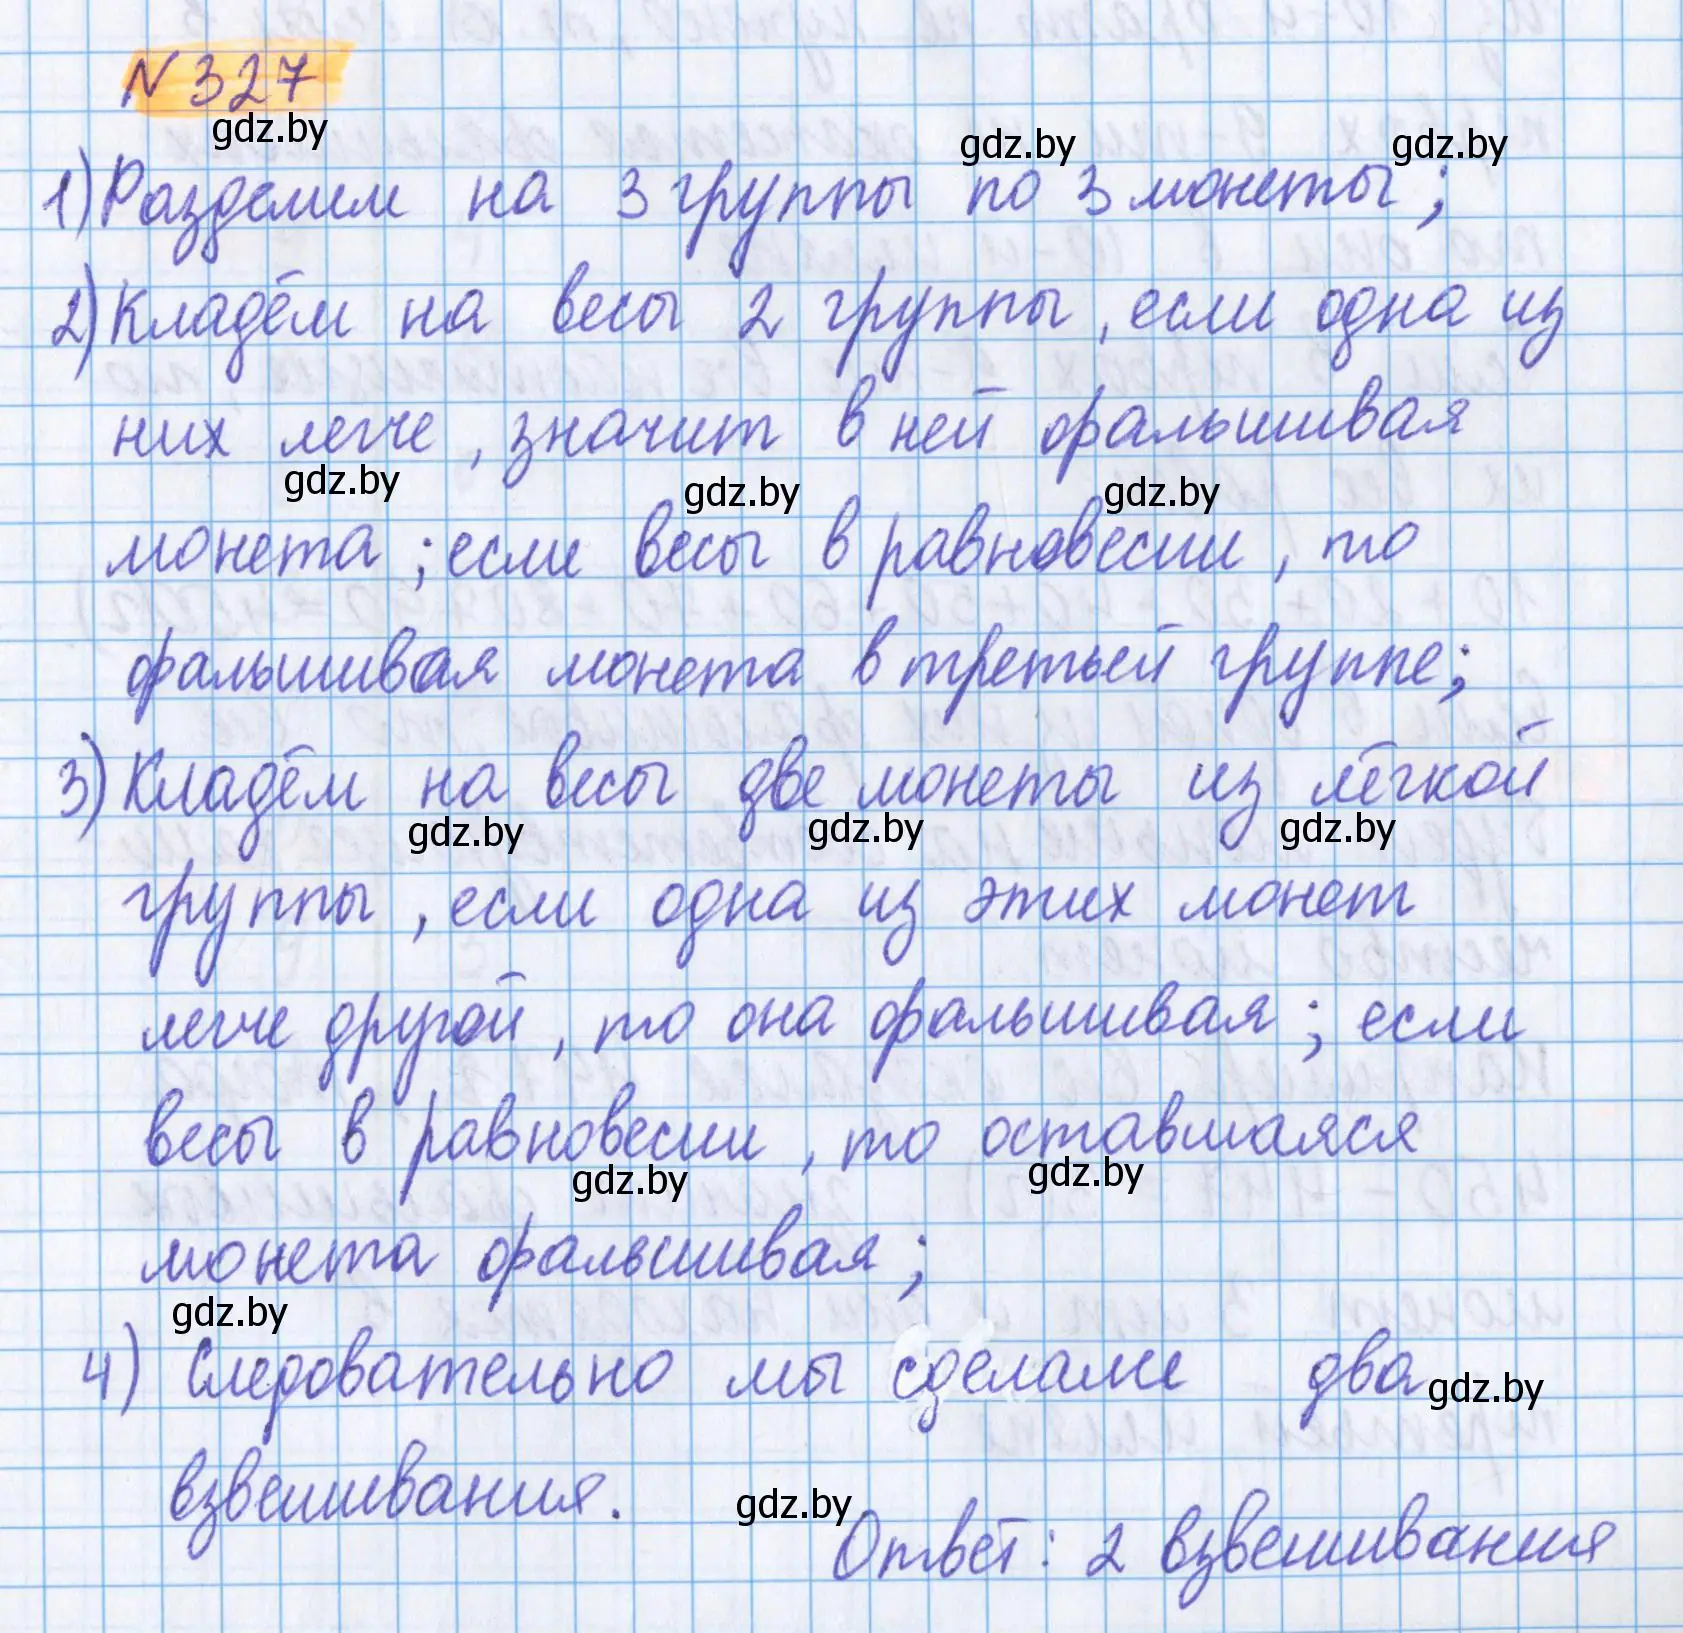 N 327
gdz.by
gdz.by gdz.by
1) Разделим на 3 группы по 3 монеты;
2) Кладём на весы 2 группы, если одна из
них легче, значит в ней фальшивая
gdz.by gdz.by gdz.by
монета; если весы в равновесии, то
фальшивая монета в третьей группе;
3) Кладём на весы две монеты из лёгкой
gdz.by gdz.by gdz.by
группы, если одна из этих монет
легче другой, то она фальшивая; если
весы в равновесии, то оставшаяся
gdz.by gdz.by
монета фальшивая;
gdz.by
4) Следовательно мы сделали два
gdz.by
взвешивания.
gdz.by
Ответ: 2 взвешивания